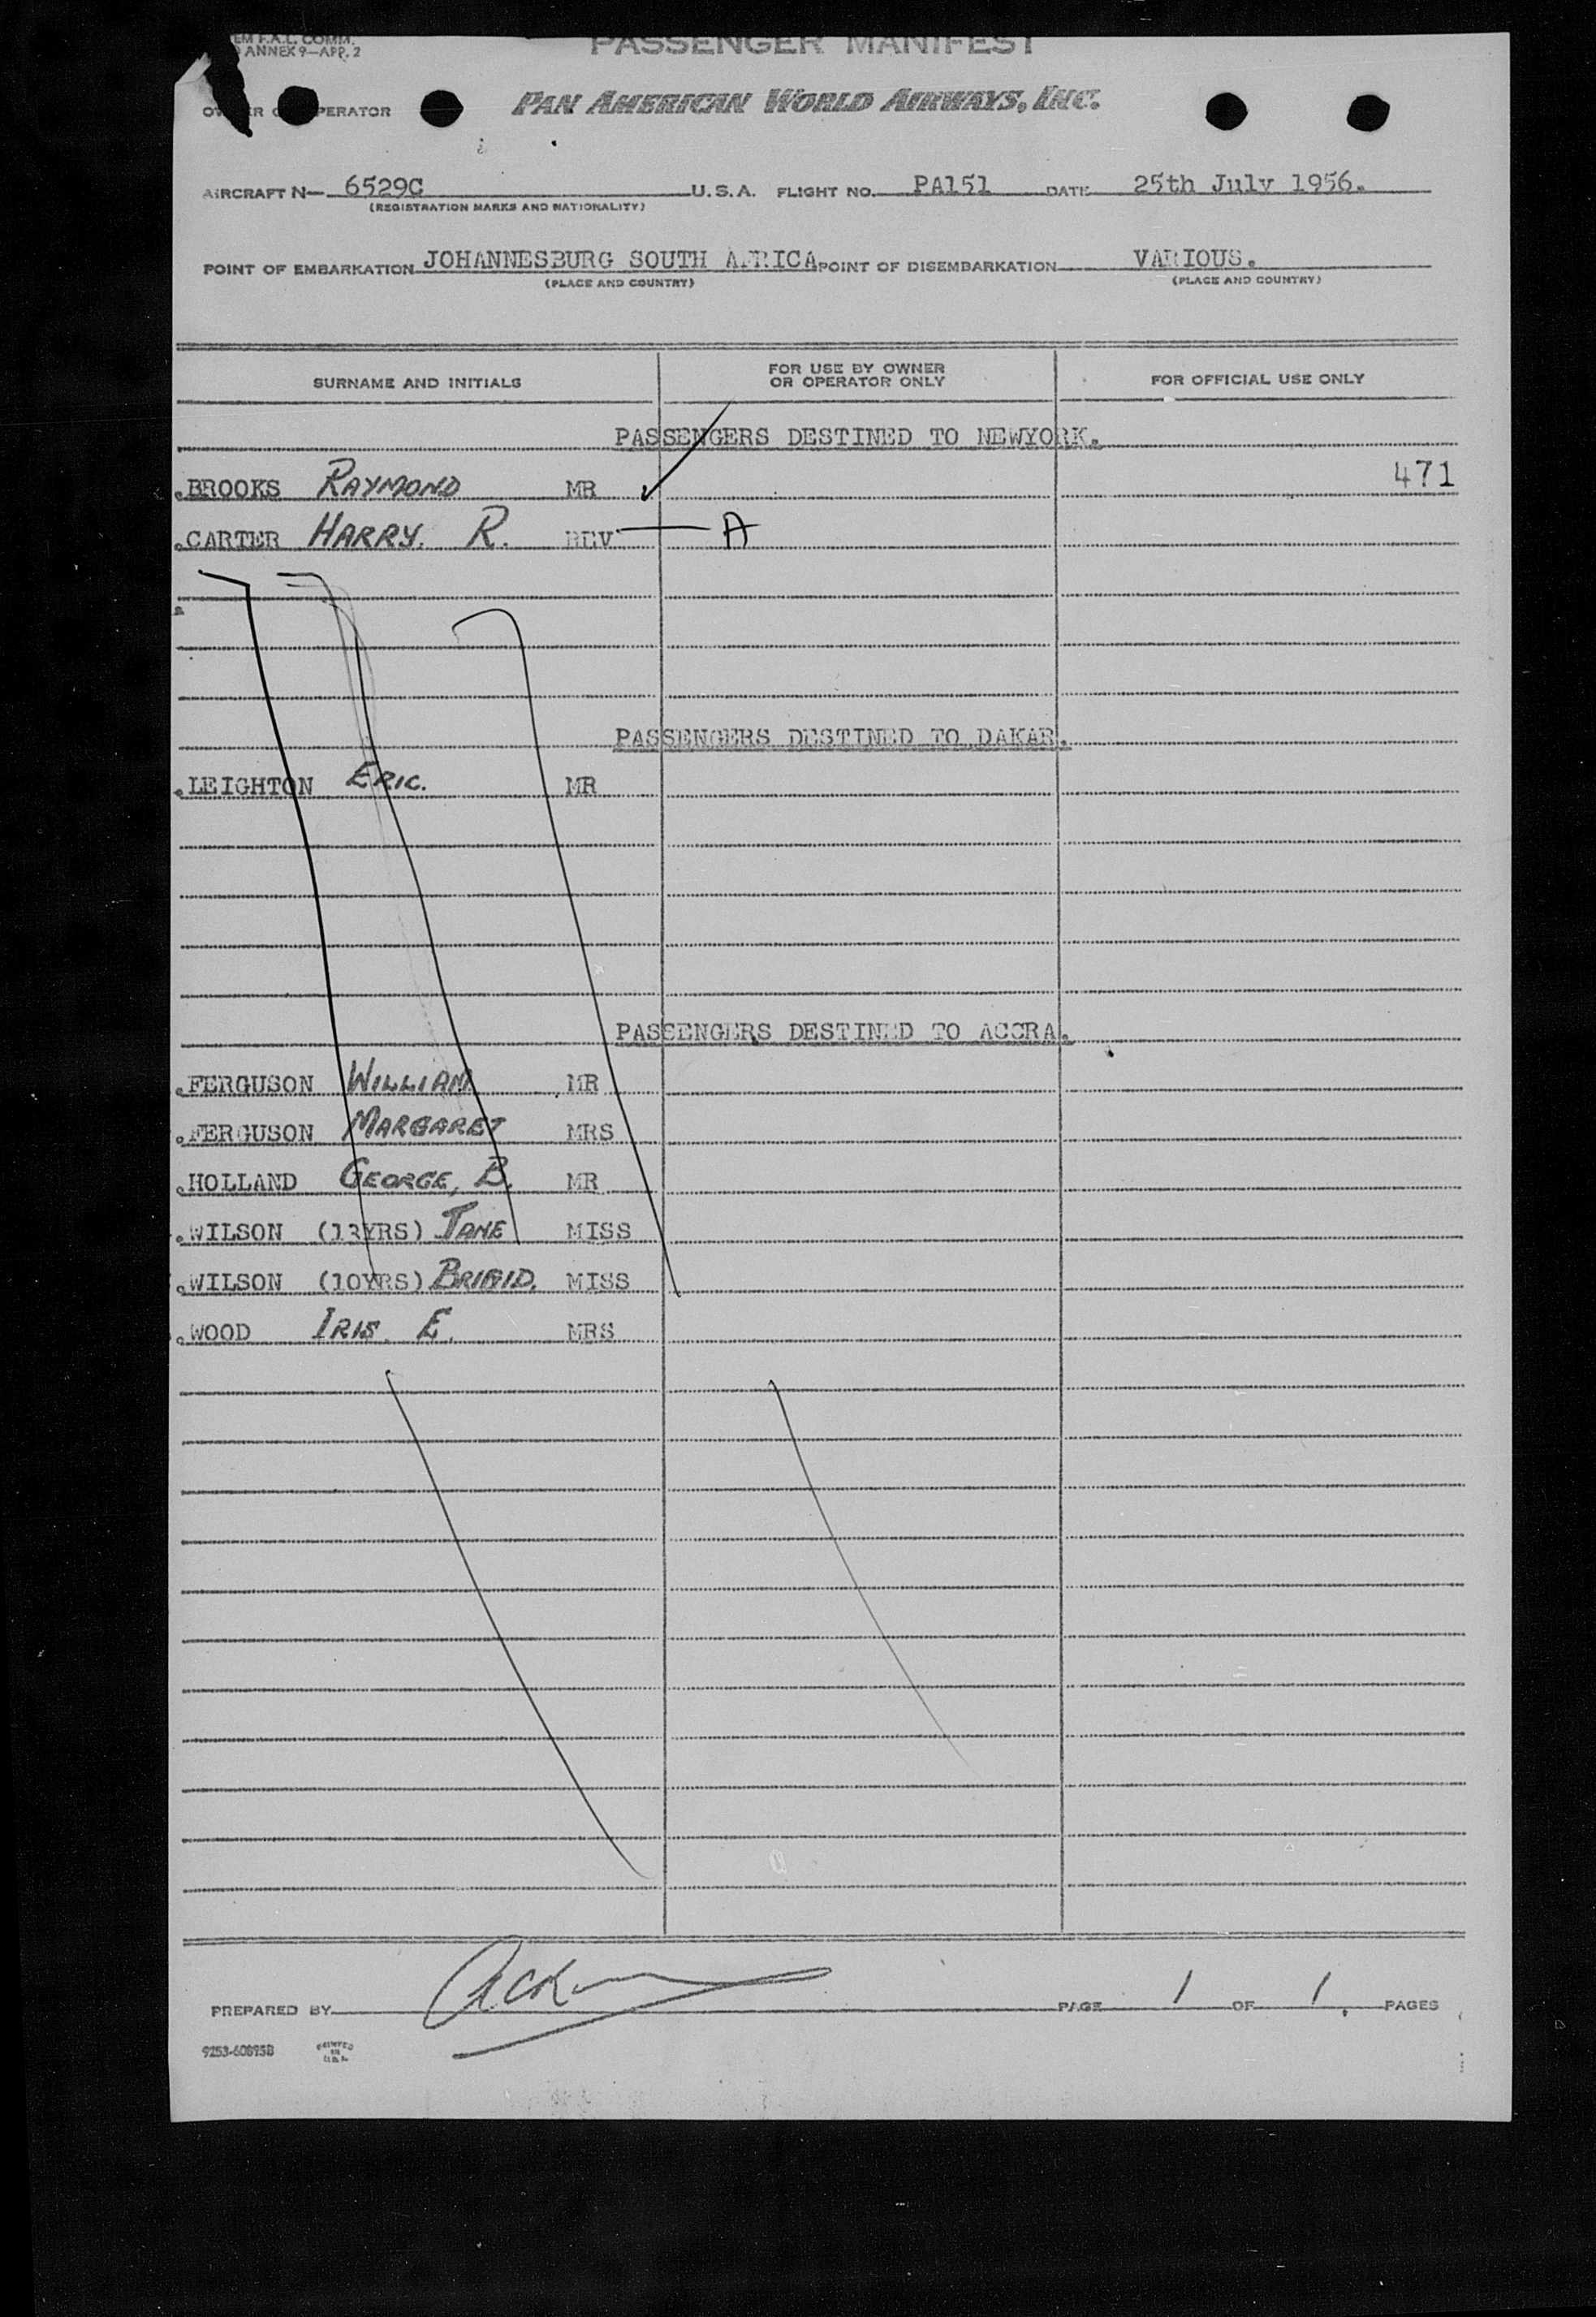 EM F.A.L. COMM.
ANNEX 9—APP. 2
PASSENGER MANIFEST
PERATOR
PAN AMERICAN WORLD AIRWAYS, INC.
AIRCRAFT N— 6529C U.S.A. FLIGHT NO. PA151 DATE 25th July 1956.
(REGISTRATION MARKS AND NATIONALITY)
POINT OF EMBARKATION JOHANNESBURG SOUTH AFRICA POINT OF DISEMBARKATION VARIOUS.
(PLACE AND COUNTRY) (PLACE AND COUNTRY)
SURNAME AND INITIALS FOR USE BY OWNER OR OPERATOR ONLY FOR OFFICIAL USE ONLY
PASSENGERS DESTINED TO NEWYORK.
BROOKS RAYMOND MR 471
CARTER HARRY. R. REV A
PASSENGERS DESTINED TO DAKAR.
LEIGHTON ERIC. MR
PASSENGERS DESTINED TO ACCRA.
FERGUSON WILLIAM MR
FERGUSON MARGARET MRS
HOLLAND GEORGE, B. MR
WILSON (13YRS) JANE MISS
WILSON (10YRS) BRIGID. MISS
WOOD IRIS. E. MRS
PREPARED BY PAGE 1 OF 1. PAGES
9253-60895B PRINTED IN U.S.A.